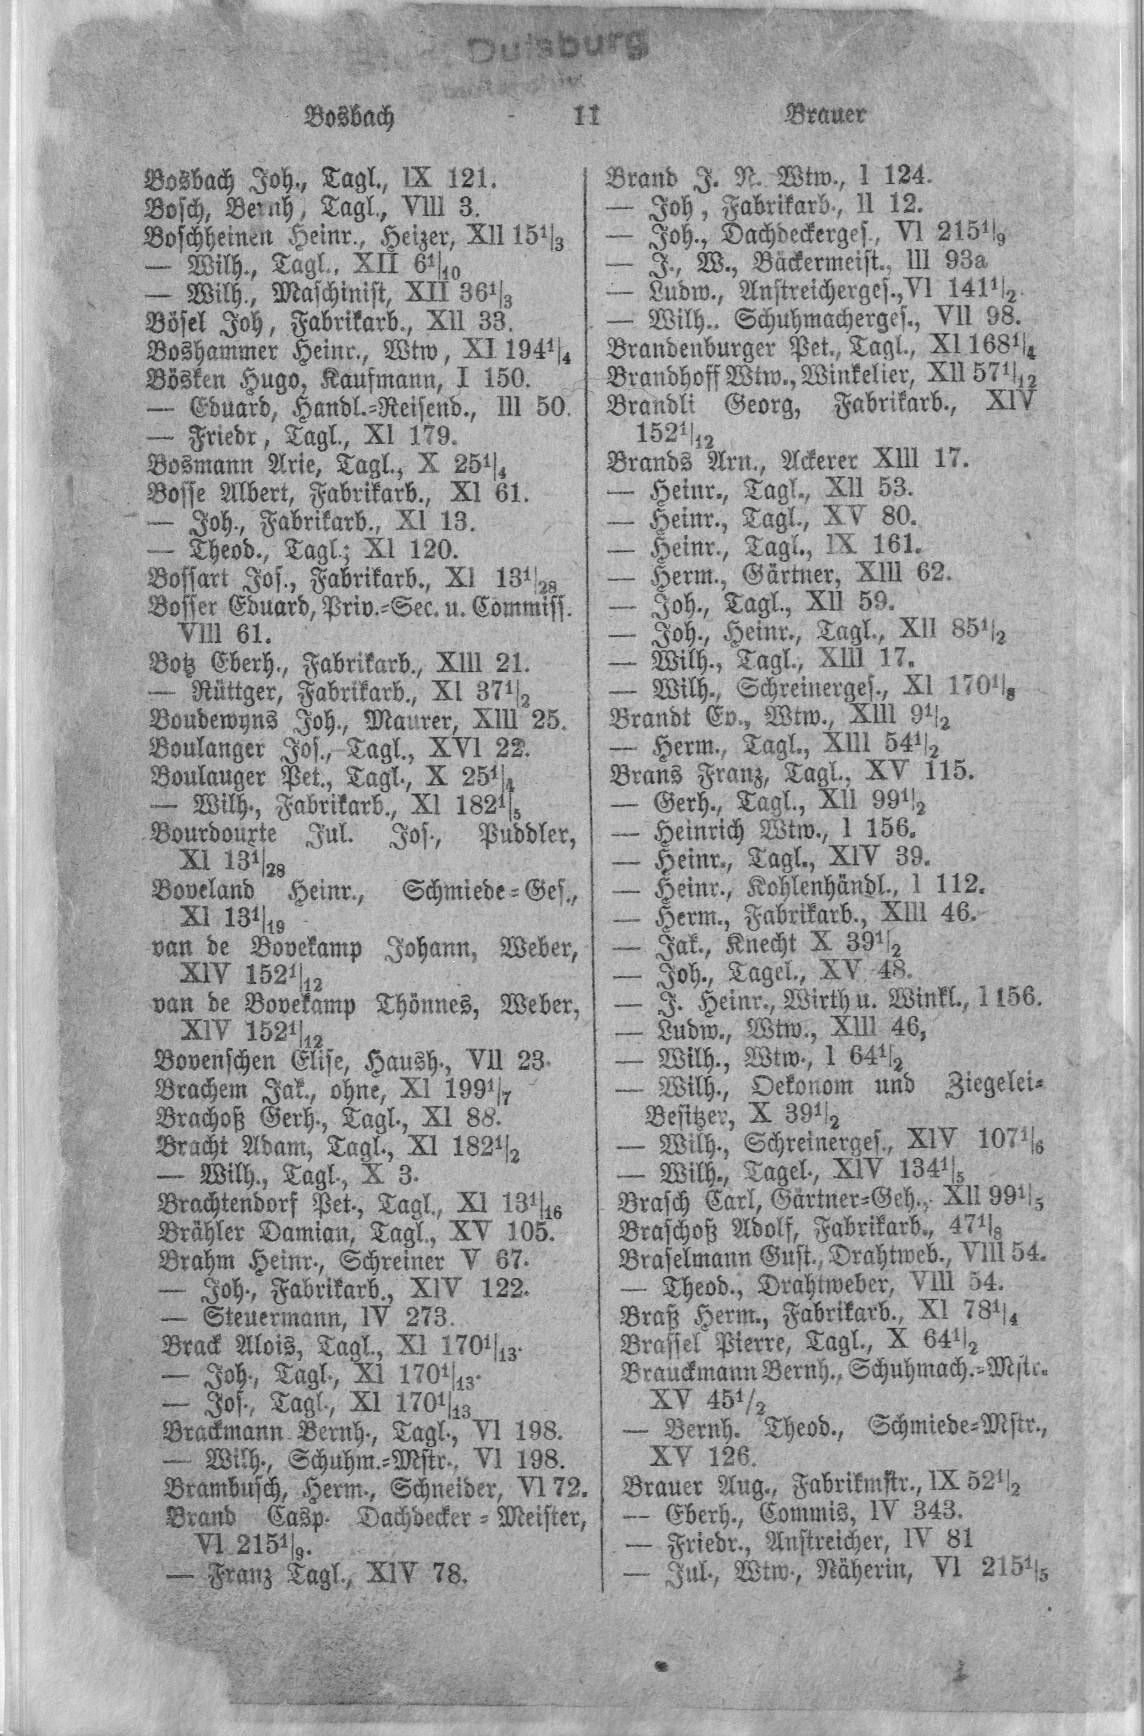 Duisburg
Bosbach 11 Brauer
Bosbach Joh., Tagl., IX 121.
Bosch, Bernh, Tagl., VIII 3.
Boschheinen Heinr., Heizer, XII 15 1/3
— Wilh., Tagl., XII 6 1/10
— Wilh., Maschinist, XII 36 1/3
Bösel Joh, Fabrikarb., XII 33.
Boshammer Heinr., Wtw, XI 194 1/4
Bösken Hugo, Kaufmann, I 150.
— Eduard, Handl.-Reisend., III 50.
— Friedr, Tagl., XI 179.
Bosmann Arie, Tagl., X 25 1/4
Bosse Albert, Fabrikarb., XI 61.
— Joh., Fabrikarb., XI 13.
— Theod., Tagl.; XI 120.
Bossart Jos., Fabrikarb., XI 13 1/28
Bosser Eduard, Priv.-Sec. u. Commiss.
VIII 61.
Botz Eberh., Fabrikarb., XIII 21.
— Rüttger, Fabrikarb., XI 37 1/2
Boudewyns Joh., Maurer, XIII 25.
Boulanger Jos., Tagl., XVI 22.
Boulauger Pet., Tagl., X 25 1/4
— Wilh., Fabrikarb., XI 182 1/5
Bourdouxte Jul. Jos., Puddler,
XI 13 1/28
Boveland Heinr., Schmiede-Ges.,
XI 13 1/19
van de Bovekamp Johann, Weber,
XIV 152 1/12
van de Bovekamp Thönnes, Weber,
XIV 152 1/12
Bovenschen Elise, Haush., VII 23.
Brachem Jak., ohne, XI 199 1/7
Brachoß Gerh., Tagl., XI 88.
Bracht Adam, Tagl., XI 182 1/2
— Wilh., Tagl., X 3.
Brachtendorf Pet., Tagl., XI 13 1/16
Brähler Damian, Tagl., XV 105.
Brahm Heinr., Schreiner V 67.
— Joh., Fabrikarb., XIV 122.
— Steuermann, IV 273.
Brack Alois, Tagl., XI 170 1/13.
— Joh., Tagl., XI 170 1/13.
— Jos., Tagl., XI 170 1/13
Brackmann Bernh., Tagl., VI 198.
— Wilh., Schuhm.-Mstr., VI 198.
Brambusch, Herm., Schneider, VI 72.
Brand Casp. Dachdecker-Meister,
VI 215 1/9.
— Franz Tagl., XIV 78.
Brand J. N. Wtw., I 124.
— Joh, Fabrikarb., II 12.
— Joh., Dachdeckerges., VI 215 1/9
— J., W., Bäckermeist., III 93a
— Ludw., Anstreicherges., VI 141 1/2.
— Wilh.. Schuhmacherges., VII 98.
Brandenburger Pet., Tagl., XI 168 1/4
Brandhoff Wtw., Winkelier, XII 57 1/12
Brandli Georg, Fabrikarb., XIV
152 1/12
Brands Arn., Ackerer XIII 17.
— Heinr., Tagl., XII 53.
— Heinr., Tagl., XV 80.
— Heinr., Tagl., IX 161.
— Herm., Gärtner, XIII 62.
— Joh., Tagl., XII 59.
— Joh., Heinr., Tagl., XII 85 1/2
— Wilh., Tagl., XIII 17.
— Wilh., Schreinerges., XI 170 1/8
Brandt Ev., Wtw., XIII 9 1/2
— Herm., Tagl., XIII 54 1/2
Brans Franz, Tagl., XV 115.
— Gerh., Tagl., XII 99 1/2
— Heinrich Wtw., I 156.
— Heinr., Tagl., XIV 39.
— Heinr., Kohlenhändl., I 112.
— Herm., Fabrikarb., XIII 46.
— Jak., Knecht X 39 1/2
— Joh., Tagel., XV 48.
— J. Heinr., Wirth u. Winkl., I 156.
— Ludw., Wtw., XIII 46,
— Wilh., Wtw., I 64 1/2
— Wilh., Oekonom und Ziegelei-
Besitzer, X 39 1/2
— Wilh., Schreinerges., XIV 107 1/6
— Wilh., Tagel., XIV 134 1/5
Brasch Carl, Gärtner-Geh., XII 99 1/5
Braschoß Adolf, Fabrikarb., 47 1/8
Braselmann Gust., Drahtweb., VIII 54.
— Theod., Drahtweber, VIII 54.
Braß Herm., Fabrikarb., XI 78 1/4
Brassel Pierre, Tagl., X 64 1/2
Brauckmann Bernh., Schuhmach.-Mstr.
XV 45 1/2
— Bernh. Theod., Schmiede-Mstr.,
XV 126.
Brauer Aug., Fabrikmstr., IX 52 1/2
— Eberh., Commis, IV 343.
— Friedr., Anstreicher, IV 81
— Jul., Wtw., Näherin, VI 215 1/5